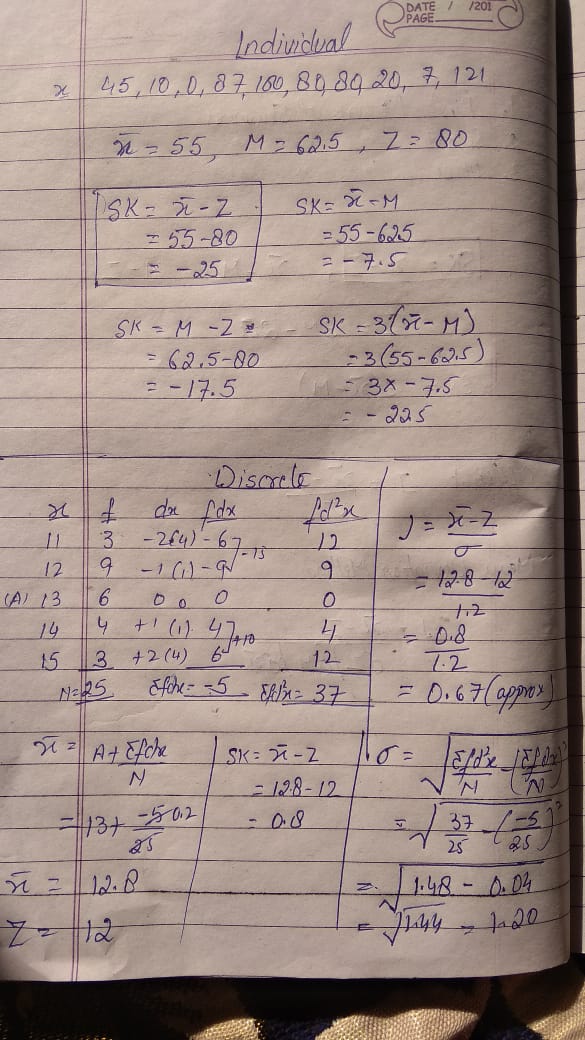 DATE / /201
PAGE
Individual
x 45, 10, 0, 87, 100, 80, 80, 20, 7, 121
x̄ = 55, M = 62.5, Z = 80
SK = x̄ - Z
= 55-80
= -25
SK = x̄ - M
= 55-62.5
= -7.5
SK = M - Z =
= 62.5-80
= -17.5
SK = 3(x̄ - M)
= 3(55-62.5)
= 3x -7.5
= -22.5
Discrete
x f dx fdx fd²x
11 3 -2(4) -6 12
12 9 -1(1) -9 -15 9
(A) 13 6 0 0 0 0
14 4 +1 (1) 4 +10 4
15 3 +2(4) 6 12
N=25 Σfdx = -5 Σfd²x = 37
J = x̄-Z/σ
= 12.8-12/1.2
= 0.8/1.2
= 0.67 (approx)
x̄ = A + Σfdx/N
= 13 + -5/25 0.2
x̄ = 12.8
Z = 12
SK = x̄ - Z
= 12.8-12
= 0.8
σ = √Σfd²x/N - (Σfdx/N)²
= √37/25 - (-5/25)²
= √1.48 - 0.04
= √1.44 = 1.20